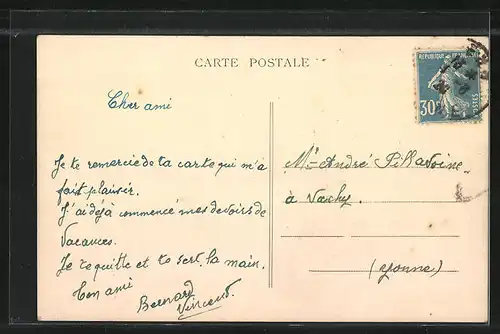 CARTE POSTALE
REPUBLIQUE FRANÇAISE
30c
POSTES
Cher ami
Je te remercie de ta carte qui m'a
fait plaisir.
J'ai déjà commencé mes devoirs de
Vacances.
Je te quitte et te serr. la main.
Ton ami
Bernard
Vincent.
Mr André Pillavoine
à Vachy.
(Yonne)